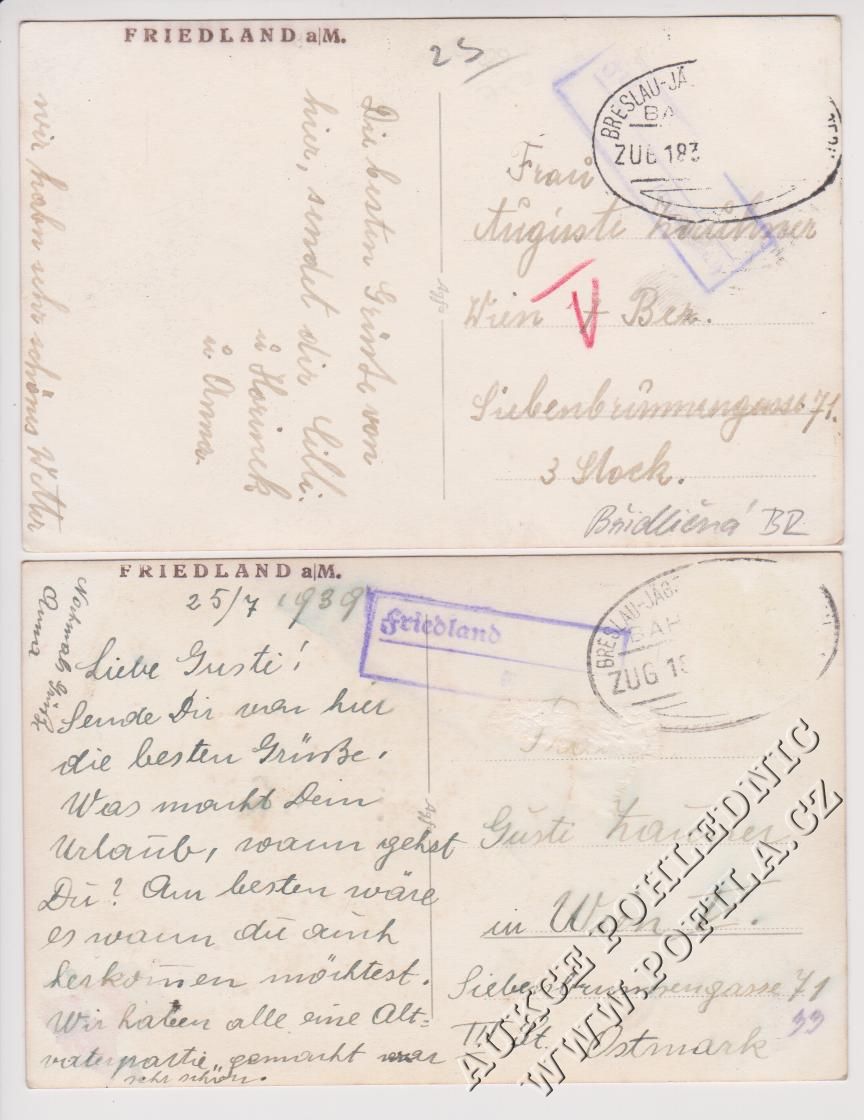 FRIEDLAND a|M.
25
BRESLAU-JÄ
BA
ZUG 183
Die besten Grüße von
hier, sendet dir Cilli.
u Horinek
u Anna.
wir habn sehr schönes Wetter
Agfa
Frau
Auguste
Wien V Bez.
Siebenbrunnengasse 71.
3 Stock.
Břidličná BR
FRIEDLAND a|M.
25/7 1939
Nochmals Grüße
Anna
Liebe Gusti!
Sende Dir von hier
die besten Grüße.
Was macht Dein
Urlaub, wann gehst
Du? Am besten wäre
es wann du auch
herkommen möchtest.
Wir haben alle eine Alt=
vaterpartie gemacht war
sehr schön.
Agfa
Friedland
BRESLAU-JÄG
BAH
ZUG 18
Frau
Gusti
in Wien V.
Siebenbrunnengasse 71
33
Ostmark
AUKCE POHLEDNIC
WWW.POFILA.CZ